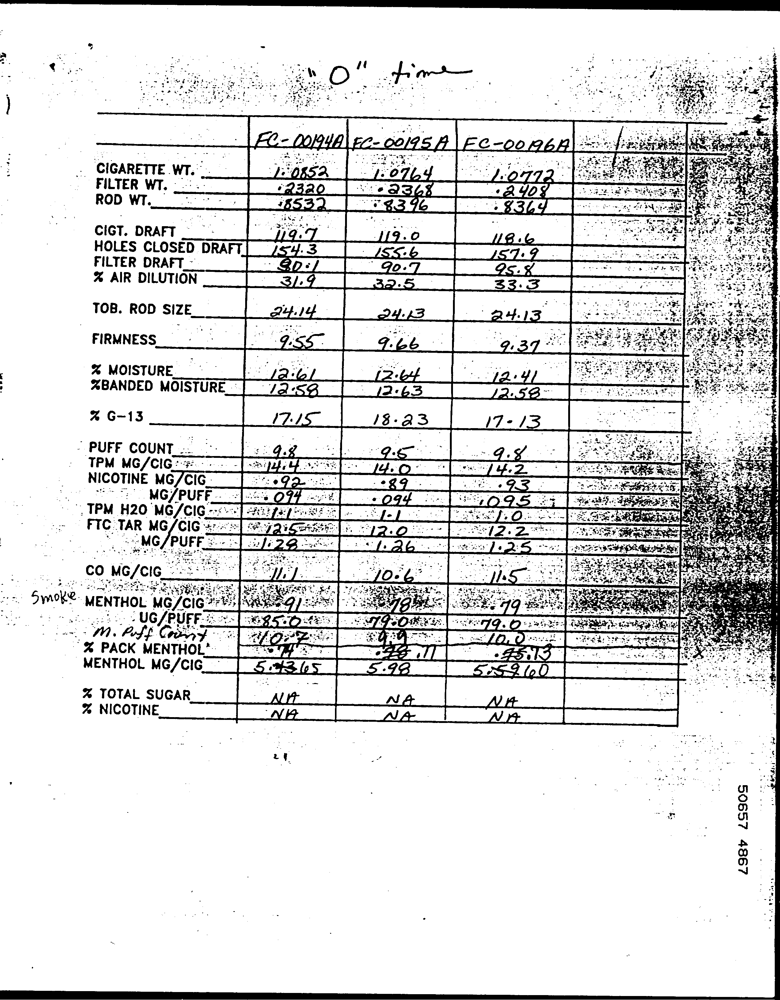 "O" time
FC-00194A FC-00195A FC-00196A
CIGARETTE WT. 1.0852 1.0764 1.0772
FILTER WT. .2320 .2368 .2408
ROD WT. .8532 .8396 .8364
CIGT. DRAFT 119.7 119.0 118.6
HOLES CLOSED DRAFT 154.3 155.6 157.9
FILTER DRAFT 90.1 90.7 95.8
% AIR DILUTION 31.9 32.5 33.3
TOB. ROD SIZE 24.14 24.13 24.13
FIRMNESS 9.55 9.66 9.37
% MOISTURE 12.61 12.64 12.41
%BANDED MOISTURE 12.58 12.63 12.58
% G-13 17.15 18.23 17.13
PUFF COUNT 9.8 9.5 9.8
TPM MG/CIG 14.4 14.0 14.2
NICOTINE MG/CIG .92 .89 .93
MG/PUFF .094 .094 .095
TPM H2O MG/CIG 1.1 1.1 1.0
FTC TAR MG/CIG 12.5 12.0 12.2
MG/PUFF 1.28 1.26 1.25
CO MG/CIG 11.1 10.6 11.5
Smoke MENTHOL MG/CIG .91 .78 .79
UG/PUFF 85.0 79.0 79.0
M. Puff Count 10.7 9.9 10.0
% PACK MENTHOL .77 .73
MENTHOL MG/CIG 5.98
% TOTAL SUGAR NA NA NA
% NICOTINE NA NA NA
50657 4867